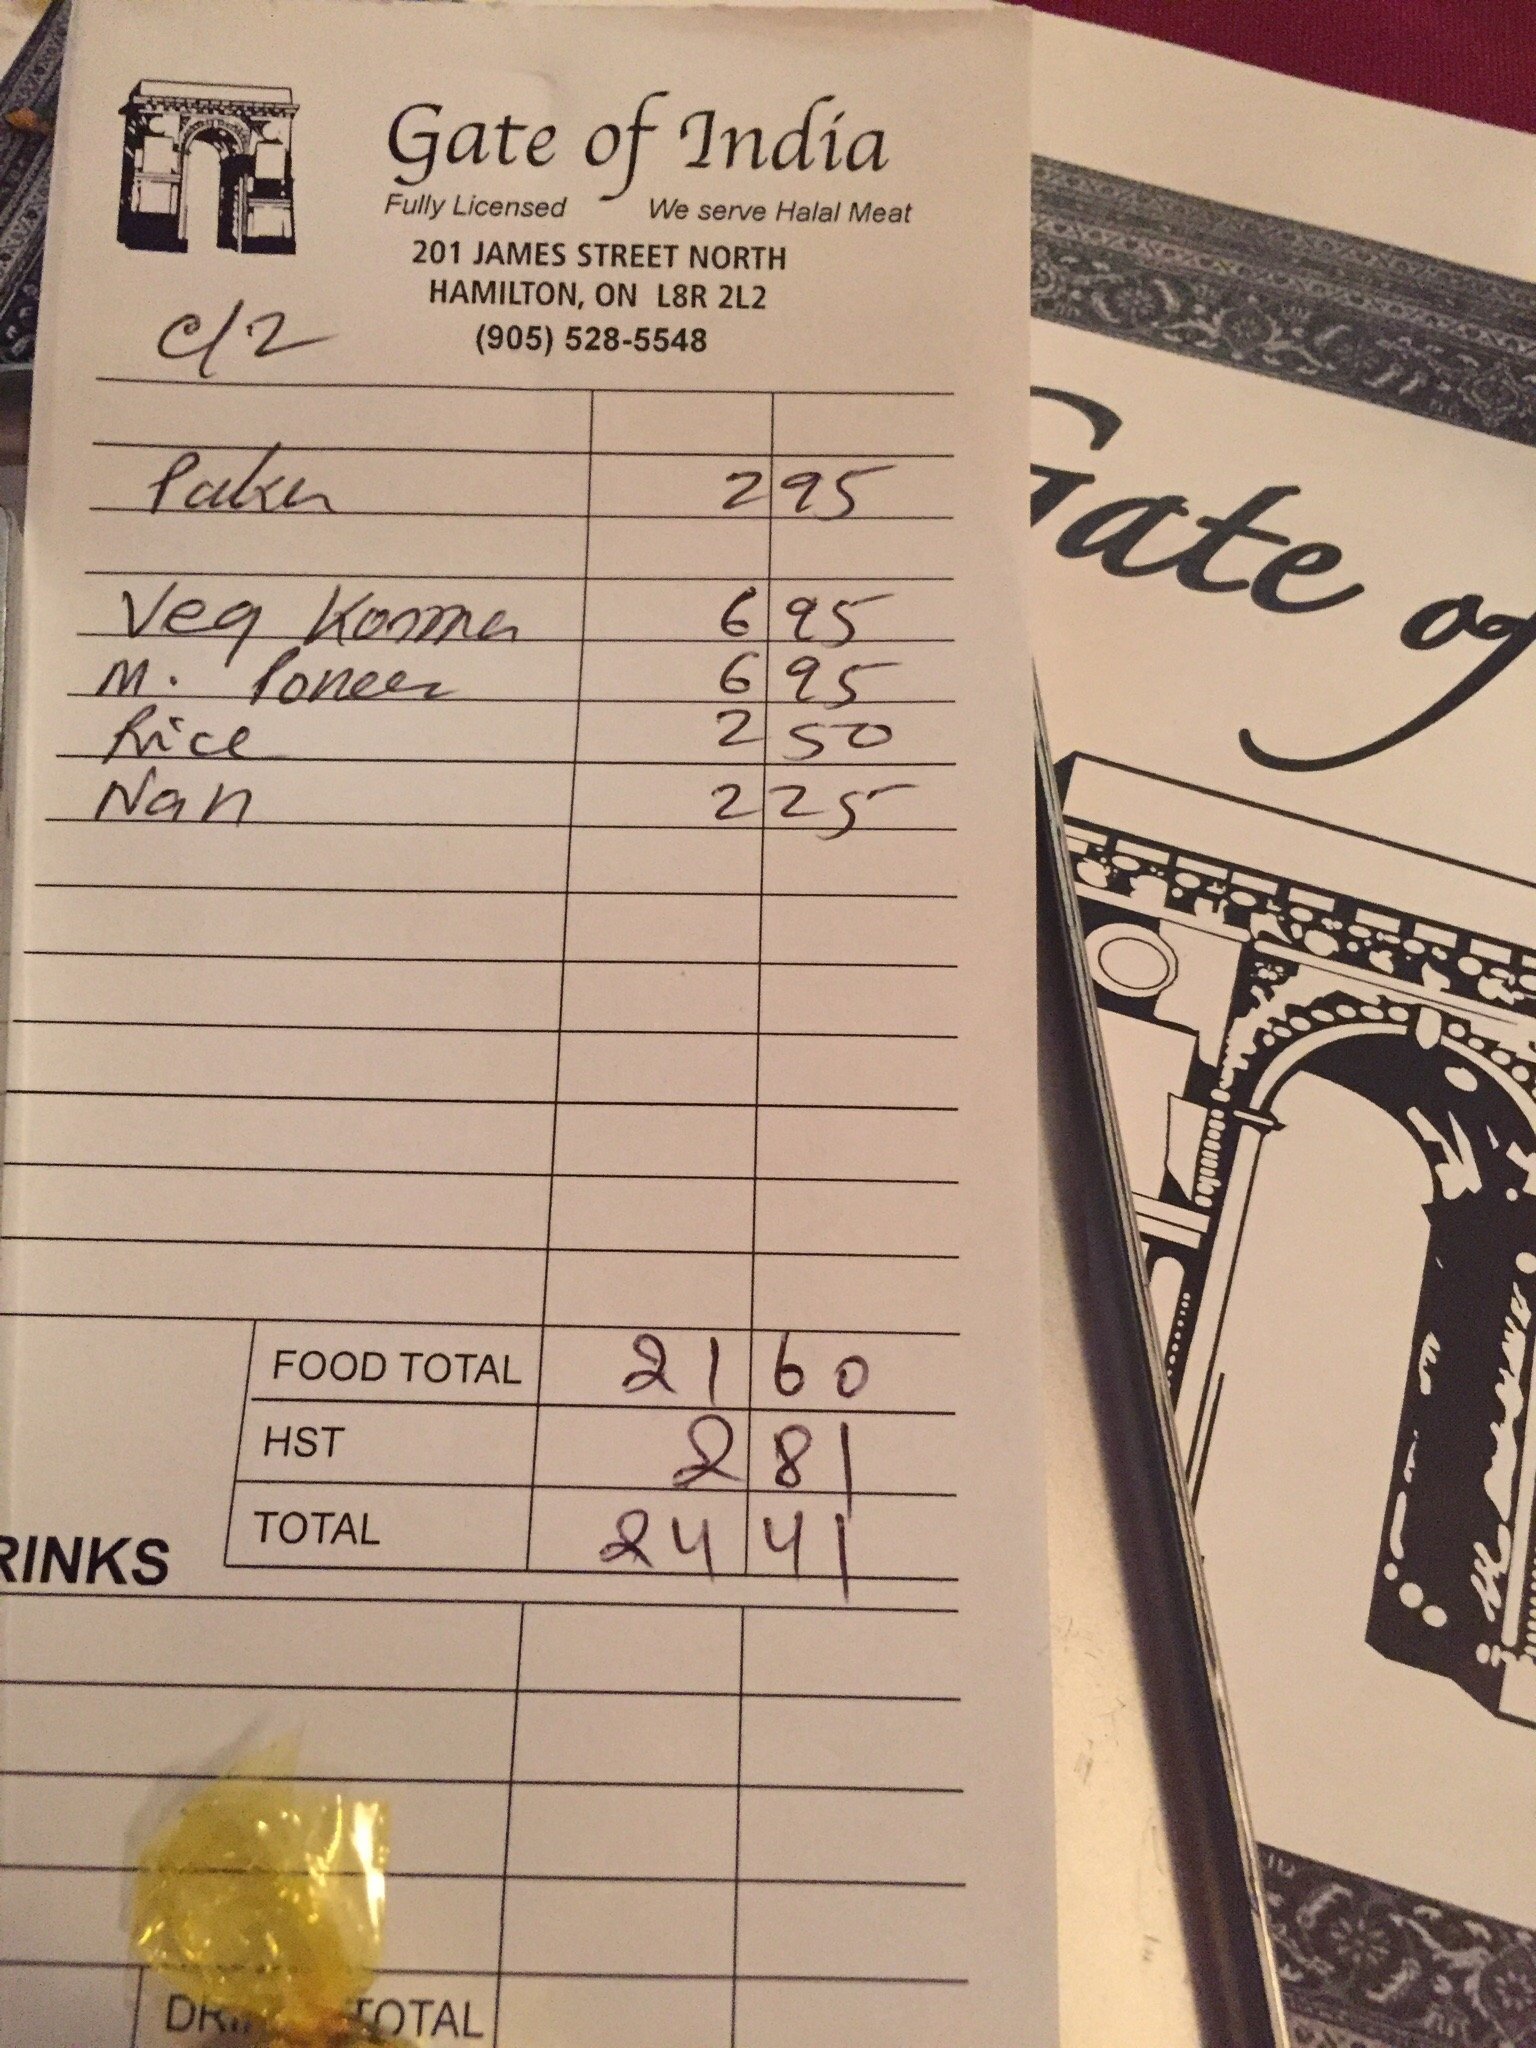 Gate of India
Fully Licensed We serve Halal Meat
201 JAMES STREET NORTH
HAMILTON, ON L8R 2L2
(905) 528-5548
c/2
2 95
Veg Korma 6 95
M. Poneer 6 95
Rice 2 50
Nan 2 25
FOOD TOTAL 21 60
HST 2 81
TOTAL 24 41
RINKS
TOTAL
Gate of